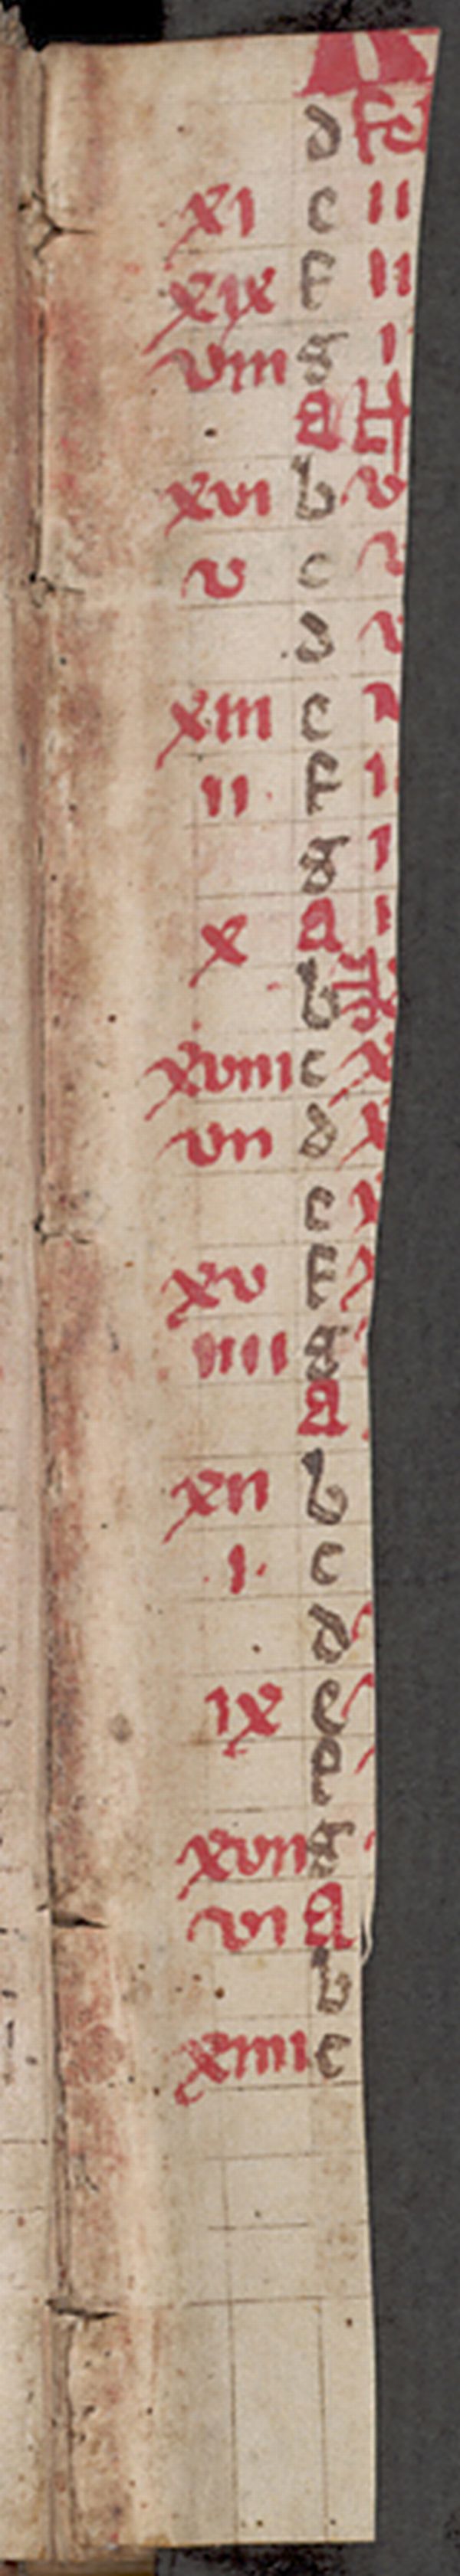 d
xi c ii
xix f ii
viii g i
a
xvi b v
v c v
d v
xiii e
ii f i
g i
x a i
b
xviii c x
vii d x
e x
xv f
iiii g
a
xii b
i c
d
ix e
f
xvii g
vi a
b
xiiii c